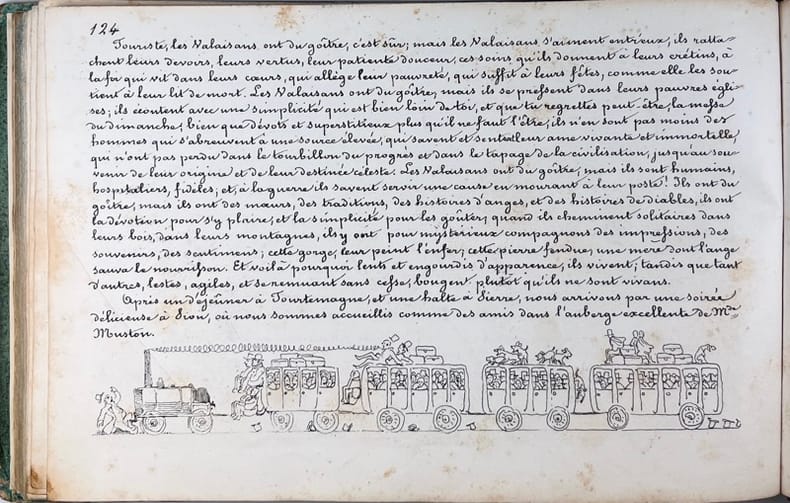 124
Touriste, les Valaisans ont du goître, c'est sûr; mais les Valaisans s'aiment entr'eux, ils ratta-
chent leurs devoirs, leurs vertus, leur patiente douceur, ces soins qu'ils donnent à leurs crétins, à
la foi qui vit dans leurs cœurs, qui allège leur pauvreté, qui suffit à leurs fêtes, comme elle les sou-
tient à leur lit de mort. Les Valaisans ont du goître, mais ils se pressent dans leurs pauvres égli-
ses; ils écoutent avec une simplicité qui est bien loin de toi, et que tu regrettes peut-être, la messe
du dimanche; bien que dévots et superstitieux plus qu'il ne faut l'être, ils n'en sont pas moins des
hommes qui s'abreuvent à une source élevée, qui savent et sentent leur ame vivante et immortelle,
qui n'ont pas perdu dans le tourbillon du progrès et dans le tapage de la civilisation, jusqu'au sou-
venir de leur origine et de leur destinée céleste. Les Valaisans ont du goître, mais ils sont humains,
hospitaliers, fidèles; et, à la guerre ils savent servir une cause en mourant à leur poste! Ils ont du
goître, mais ils ont des mœurs, des traditions, des histoires d'anges, et des histoires de diables, ils ont
la dévotion pour s'y plaire, et la simplicité pour les goûter; quand ils cheminent solitaires dans
leurs bois, dans leurs montagnes, ils y ont pour mystérieux compagnons des impressions, des
souvenirs, des sentimens; cette gorge, leur peint l'enfer; cette pierre fendue, une mère dont l'ange
sauva le nourrisson. Et voilà pourquoi lents et engourdis d'apparence, ils vivent; tandis que tant
d'autres, lestes, agiles, et se remuant sans cesse, bougent plutôt qu'ils ne sont vivans.
Après un déjeûner à Tourtemagne, et une halte à Sierre, nous arrivons par une soirée
délicieuse à Sion, où nous sommes accueillis comme des amis dans l'auberge excellente de Mme
Muston.